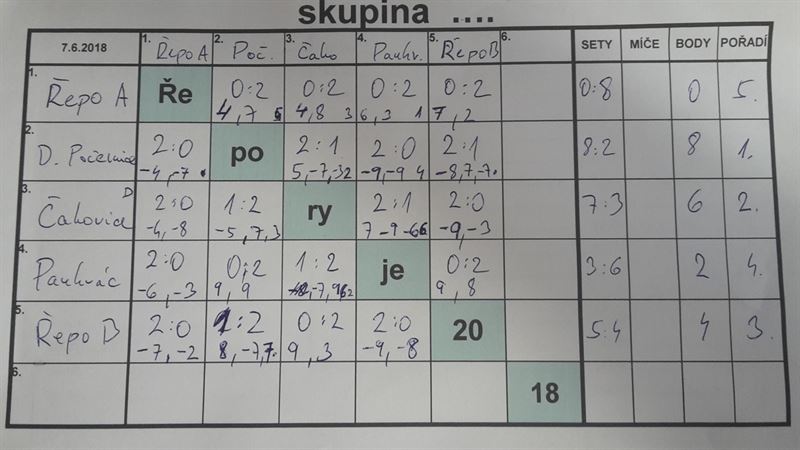 skupina ....
7.6.2018 1. Řepo A 2. Poč. 3. Čako 4. Pankr. 5. Řepo B 6. SETY MÍČE BODY POŘADÍ
1. Řepo A Ře 0:2 0:2 0:2 0:2 0:8 0 5.
4,7 4,8 3 6,3 1 7,2
2. D. Počernice 2:0 po 2:1 2:0 2:1 8:2 8 1.
-4,-7 5,-7,-32 -9,-9 4 -8,7,-7
3. D Čakovice 2:0 1:2 ry 2:1 2:0 7:3 6 2.
-4,-8 -5,7,3 7 -9 -6 -9,-3
4. Pankrác 2:0 0:2 1:2 je 0:2 3:6 2 4.
-6,-3 9,9 -7,9 9,8
5. Řepo B 2:0 1:2 0:2 2:0 20 5:4 4 3.
-7,-2 8,-7,7 9,3 -9,-8
6. 18